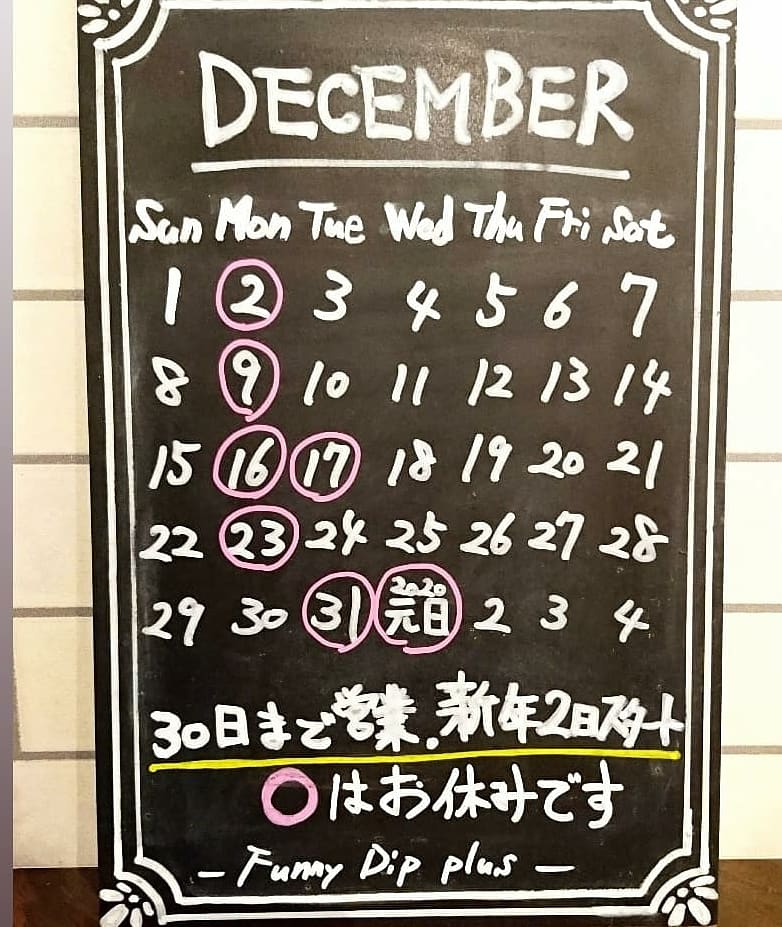 DECEMBER
Sun Mon Tue Wed Thu Fri Sat
1 2 3 4 5 6 7
8 9 10 11 12 13 14
15 16 17 18 19 20 21
22 23 24 25 26 27 28
2020
29 30 31 元日 2 3 4
30日まで営業.新年2日スタート
○はお休みです
- Funny Dip plus -